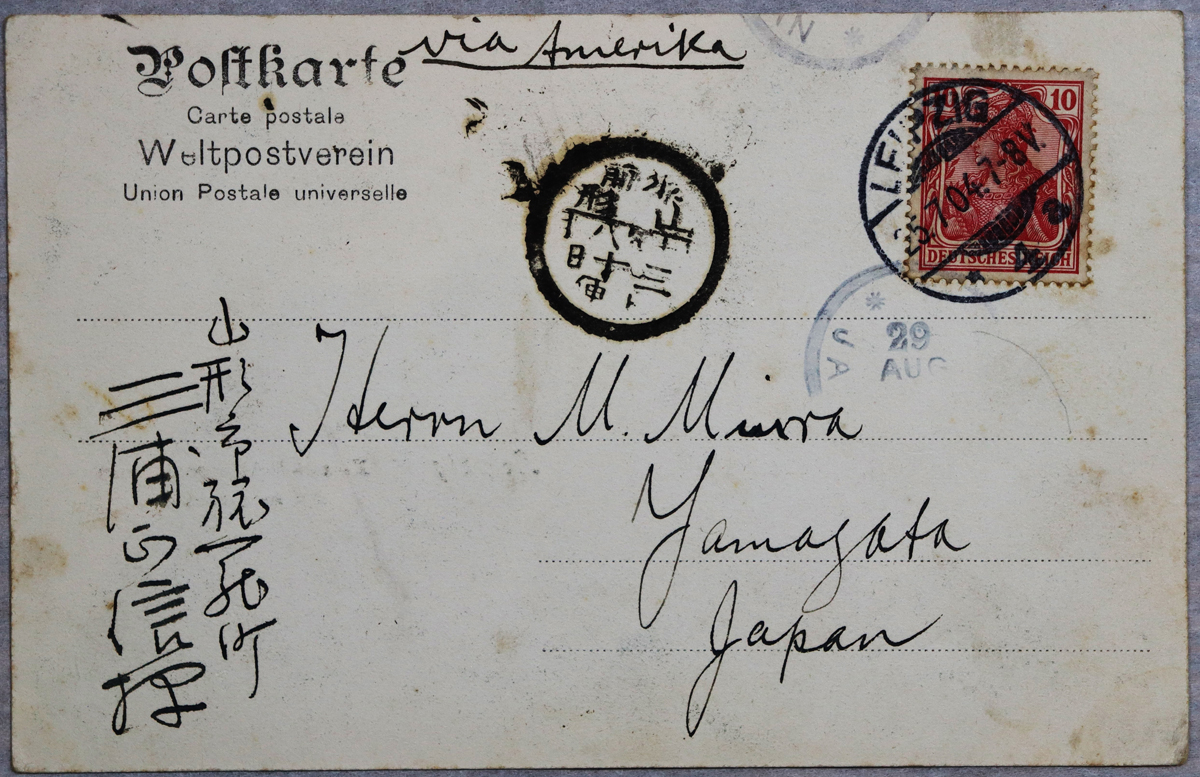 Postkarte
Carte postale
Weltpostverein
Union Postale universelle
via Amerika
10
DEUTSCHES REICH
LEIPZIG
25.7.04.7-8V.
* 4 a
29
AUG
Herrn M. Miura
Yamagata
Japan
山形市旅篭町
三浦正信様